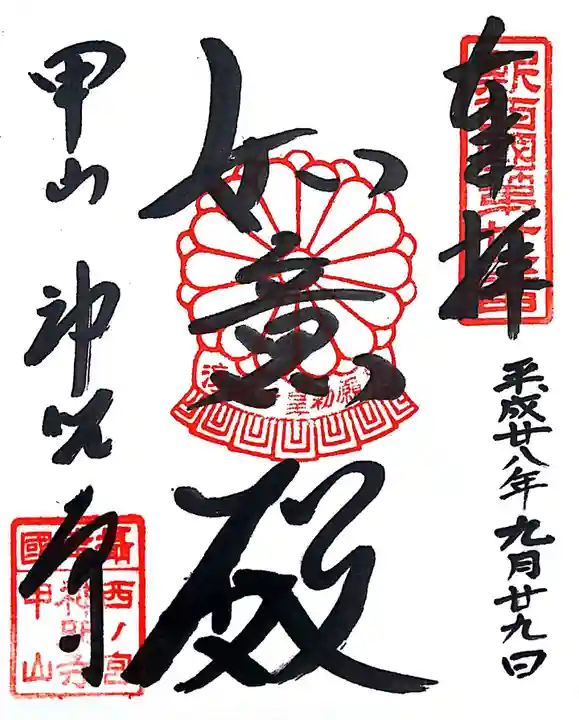 奉拝
平成廿八年九月廿九日
如意殿
甲山 神呪寺
攝
國
西ノ宮
神呪寺
甲山